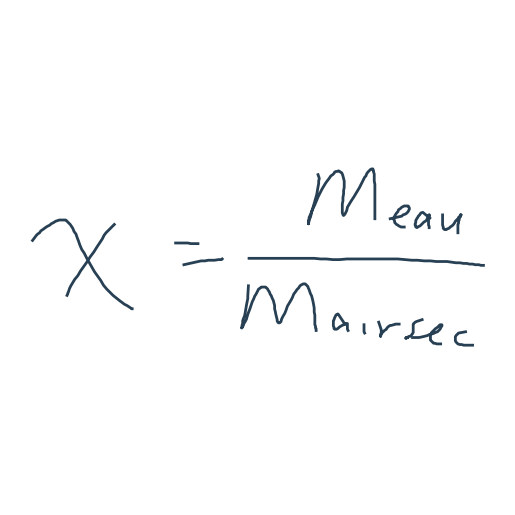 χ = M_eau / M_airsec